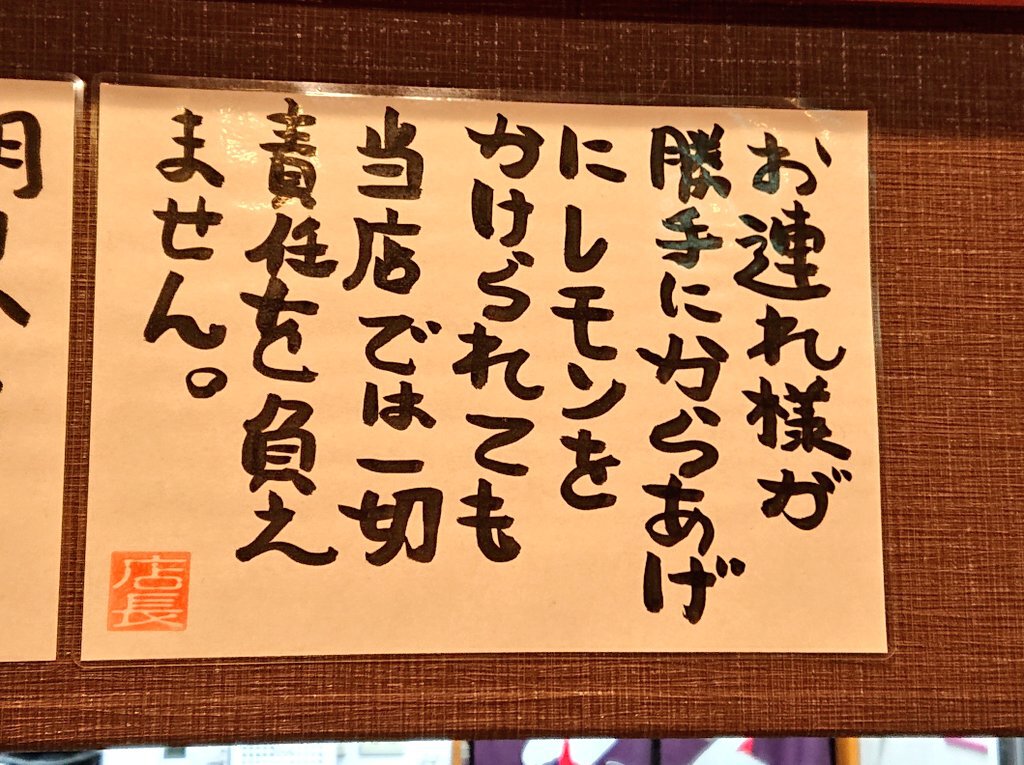 お連れ様が
勝手にからあげ
にレモンを
かけられても
当店では一切
責任を負え
ません。
店長